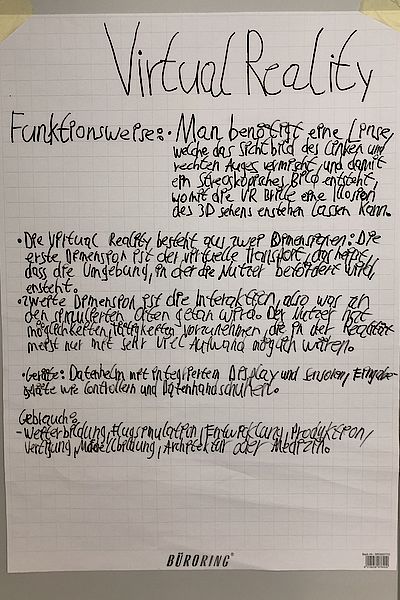 Virtual Reality
Funktionsweise: • Man benötigt eine Linse,
welche das Sichtbild des Linken und
rechten Auges vermischt, und damit
ein Streoskopisches Bild entsteht,
womit die VR Brille eine Illusion
des 3D sehens enstehen lassen kann.
• Die Virtual Reality besteht aus zwei Dimensionen: Die
erste Dimension ist der virtuelle Transport, das heißt,
dass die Umgebung, in der die Nutzer befördert wird,
ensteht.
• Zweite Dimension ist die Interaktion, also was an
den simulierten Orten getan wird. Der Nutzer hat
möglichkeiten, tätigkeiten vorzunehmen, die in der Realität
meist nur mit sehr viel Aufwand möglich wären.
• Geräte: Datenhelm mit integriertem Display und Sensoren, Eingabe-
geräte wie Controllern und Datenhandschuhen.
Gebrauch:
- Weiterbildung, Flugsimulation, Entwicklung, Produktion,
Fertigung, Modellbildung, Architektur oder Medizin.
BÜRORING